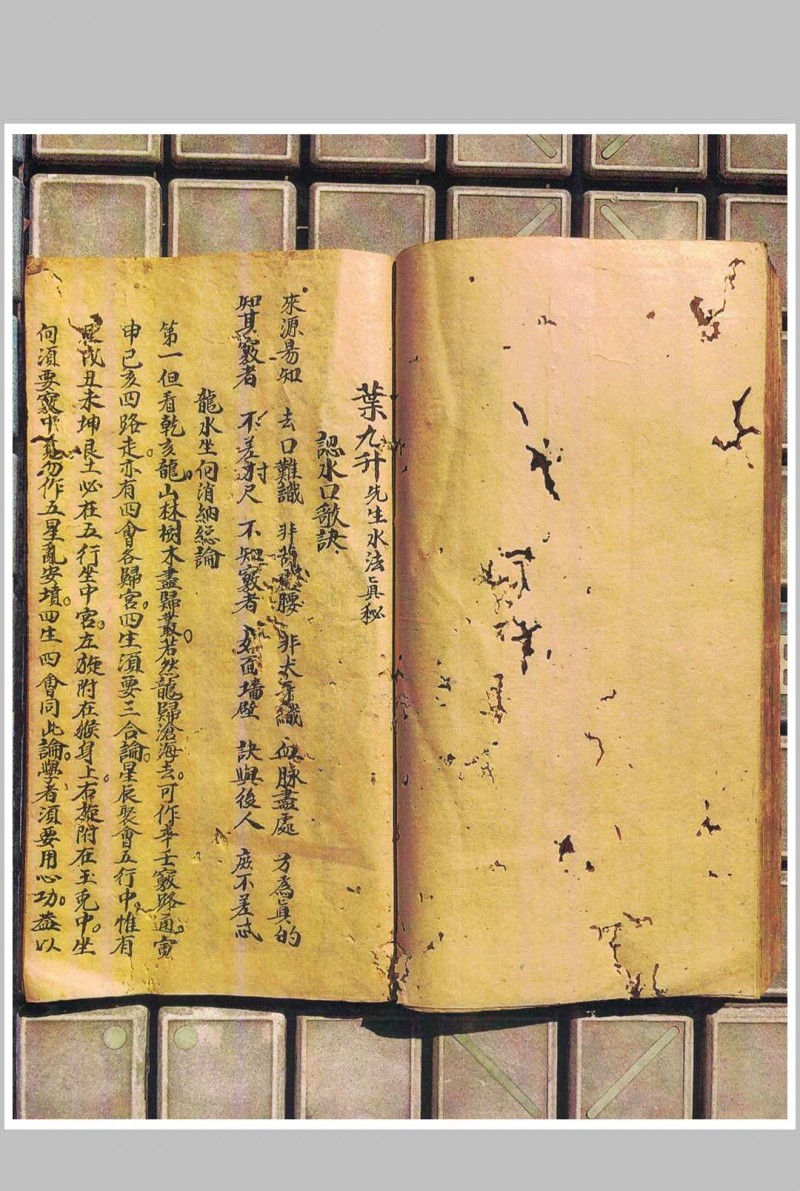 葉九升先生水法眞秘
認水口歌訣
來源易知 去口難識 非 腰 非犬牙織 血脉盡處 方為眞的
知其竅者 不差尺 不知竅者 面墻壁 訣與後人 庶不差忒
龍水坐向消納総論
第一但看乾亥龍。山林樹木盡歸叢。若然龍歸滄海去。可作辛壬竅路通。寅
申巳亥四路走。亦有四會各歸宮。四生須要三合論。星辰聚會五行中。惟有
戌丑未坤艮土。必在五行坐中宮。左旋附在猴身上。右旋附在玉兎中。坐
向須要竅中覔。勿作五星亂安墳。四生四會同此論。學者須要用心功。葢以